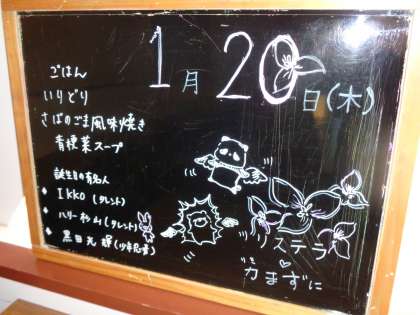 1月20日(木)
ごはん
いりどり
さばのごま風味焼き
青梗菜スープ
誕生日の有名人
◆ IKKO (タレント)
◆ ハリー杉山 (タレント)
◆ 黒田光輝 (少年忍者)
リステラ
力まずに